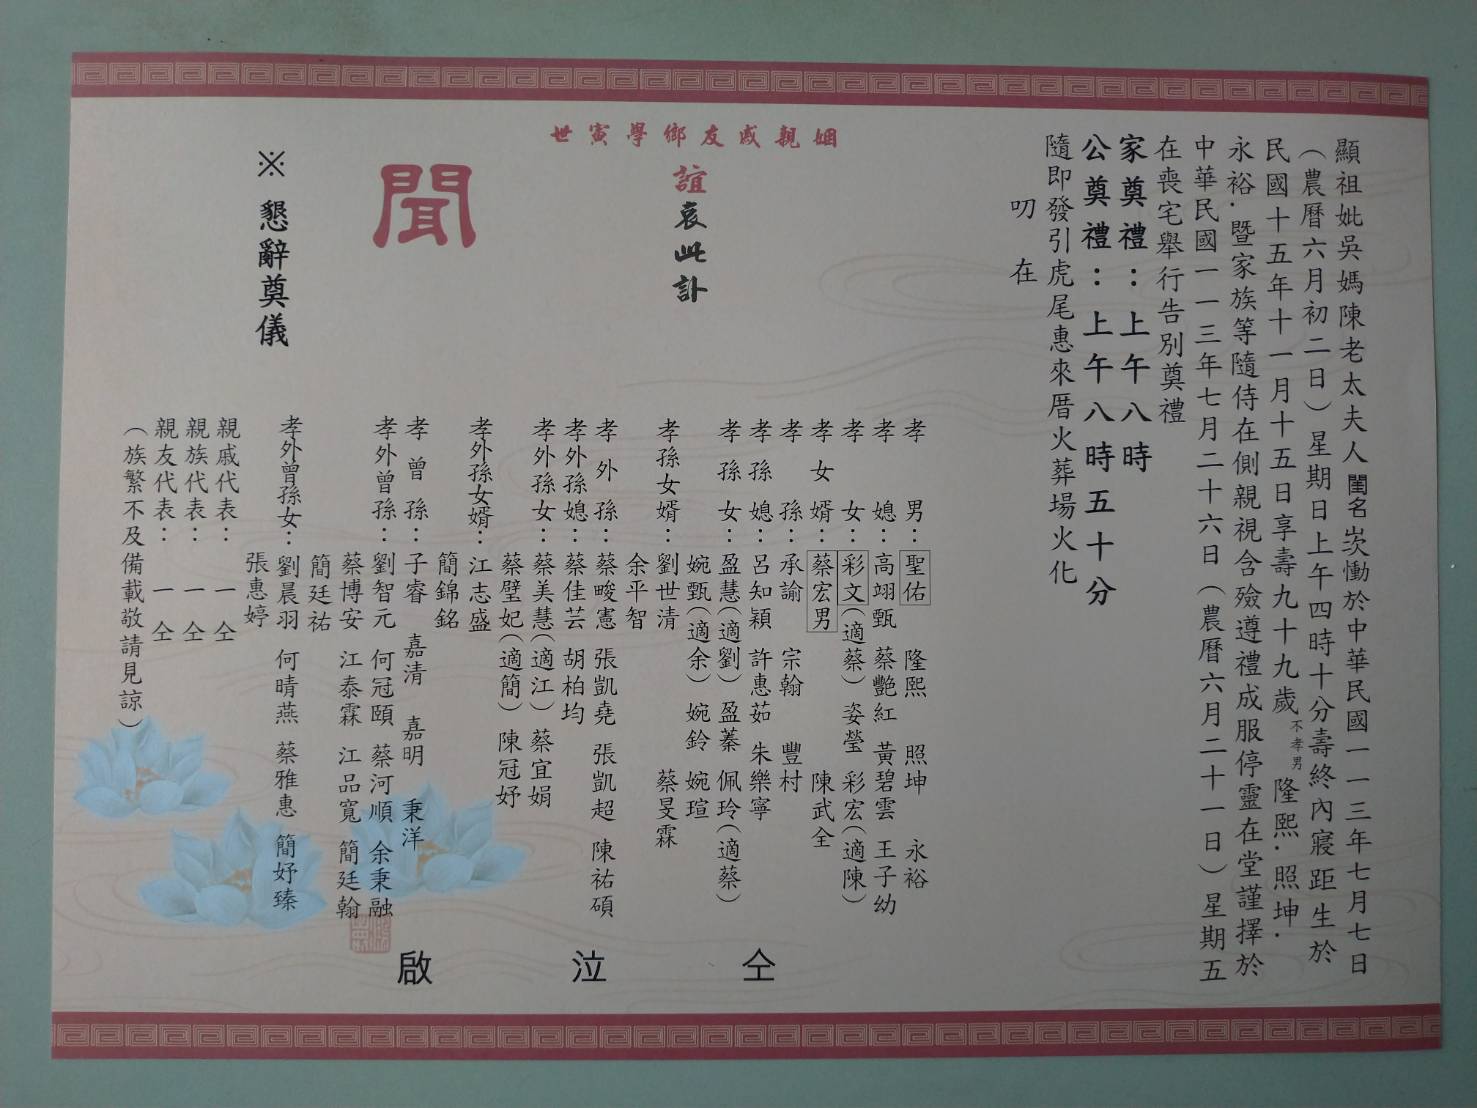 顯祖妣吳媽陳老太夫人閨名崁慟於中華民國一一三年七月七日
（農曆六月初二日）星期日上午四時十分壽終內寢距生於
民國十五年十一月十五日享壽九十九歲不孝男隆熙．照坤．
永裕．暨家族等隨侍在側親視含殮遵禮成服停靈在堂謹擇於
中華民國一一三年七月二十六日（農曆六月二十一日）星期五
在喪宅舉行告別奠禮
家奠禮：上午八時
公奠禮：上午八時五十分
隨即發引虎尾惠來厝火葬場火化
叨在
姻親戚友鄉學寅世
誼哀此訃
聞
※懇辭奠儀
孝男：聖佑 隆熙 照坤 永裕
孝媳：高翊甄 蔡艷紅 黃碧雲 王子幼
孝女：彩文（適蔡） 姿瑩 彩宏（適陳）
孝女婿：蔡宏男 陳武全
孝孫：承諭 宗翰 豐村
孝孫媳：呂知穎 許惠茹 朱樂寧
孝孫女：盈慧（適劉） 盈蓁 佩玲（適蔡）
婉甄（適余） 婉鈴 婉瑄
孝孫女婿：劉世清 蔡旻霖
余平智
孝外孫：蔡畯憲 張凱堯 張凱超 陳祐碩
孝外孫媳：蔡佳芸 胡柏均
孝外孫女：蔡美慧（適江） 蔡宜娟
蔡璧妃（適簡） 陳冠妤
孝外孫女婿：江志盛
簡錦銘
孝曾孫：子睿 嘉清 嘉明 秉洋
孝外曾孫：劉智元 何冠頤 蔡河順 余秉融
蔡博安 江泰霖 江品寬 簡廷翰
簡廷祐
孝外曾孫女：劉晨羽 何晴燕 蔡雅惠 簡妤臻
張惠婷
親戚代表：一仝
親族代表：一仝
親友代表：一仝
（族繁不及備載敬請見諒）
仝泣啟